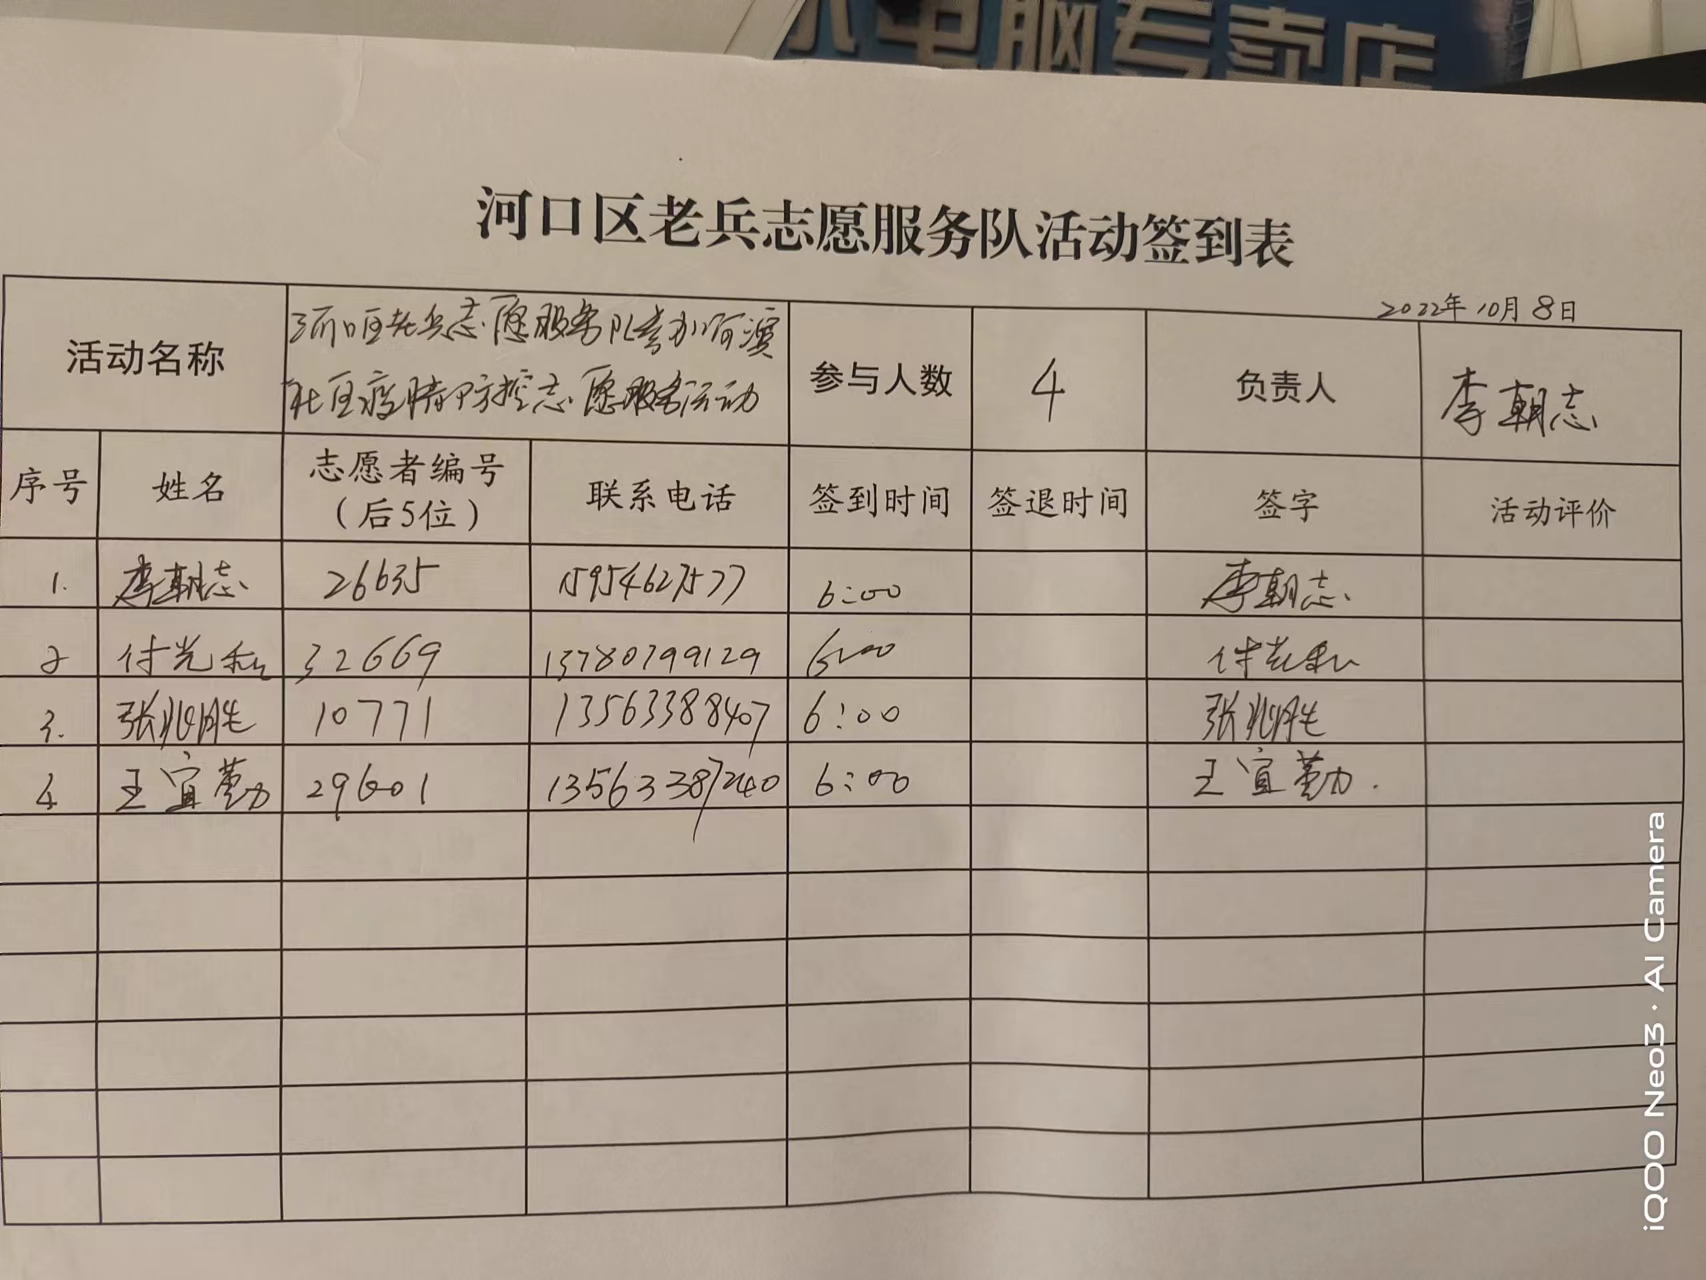 电脑专卖店
河口区老兵志愿服务队活动签到表
2022年10月8日
活动名称 河口区老兵志愿服务队李办河滨 参与人数 4 负责人 李朝志
社区疫情防控志愿服务活动
序号 姓名 志愿者编号 联系电话 签到时间 签退时间 签字 活动评价
（后5位）
1. 李朝志 26635 15954627577 6:00 李朝志
2 付光和 32669 13780799129 6:00 付光和
3. 张兆胜 10771 13563388407 6:00 张兆胜
4 王宜勤 29601 13563387240 6:00 王宜勤.
iQOO Neo3 · AI Camera